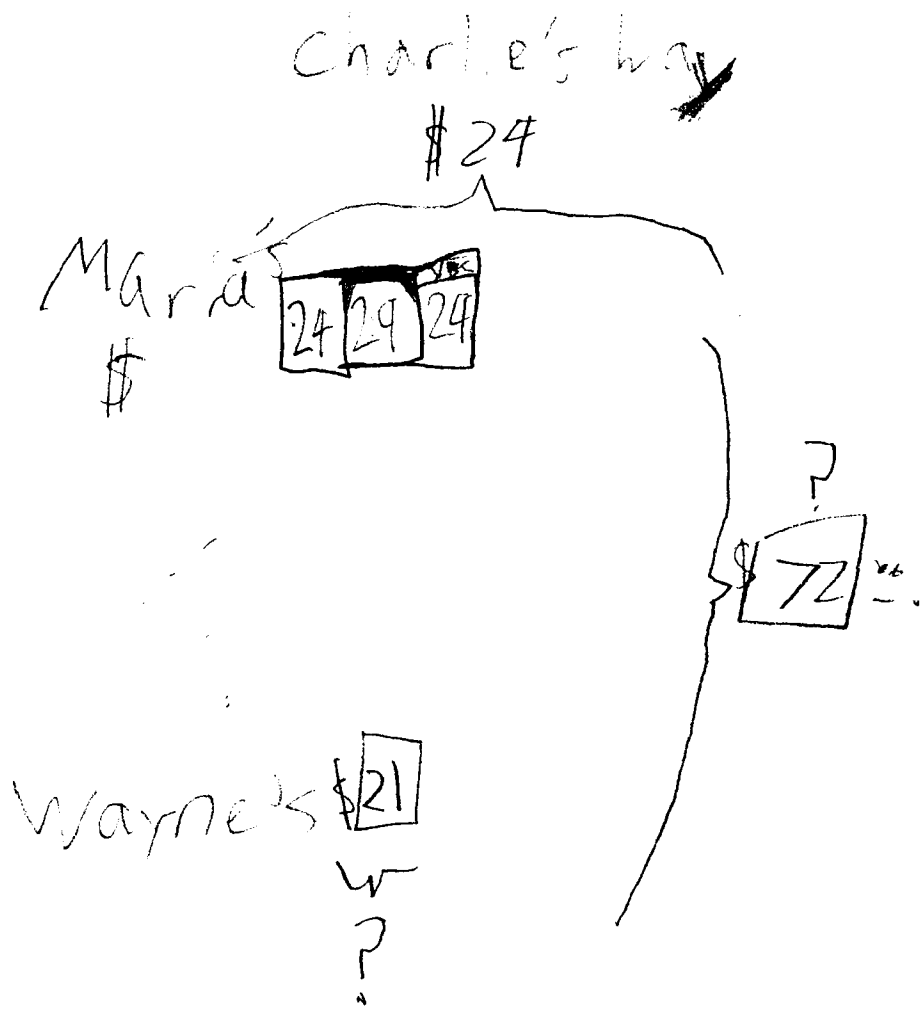 Charlie's way
$ 24
Maria's
24 29 24
$
?
$ 72
Wayne's $ 21
?